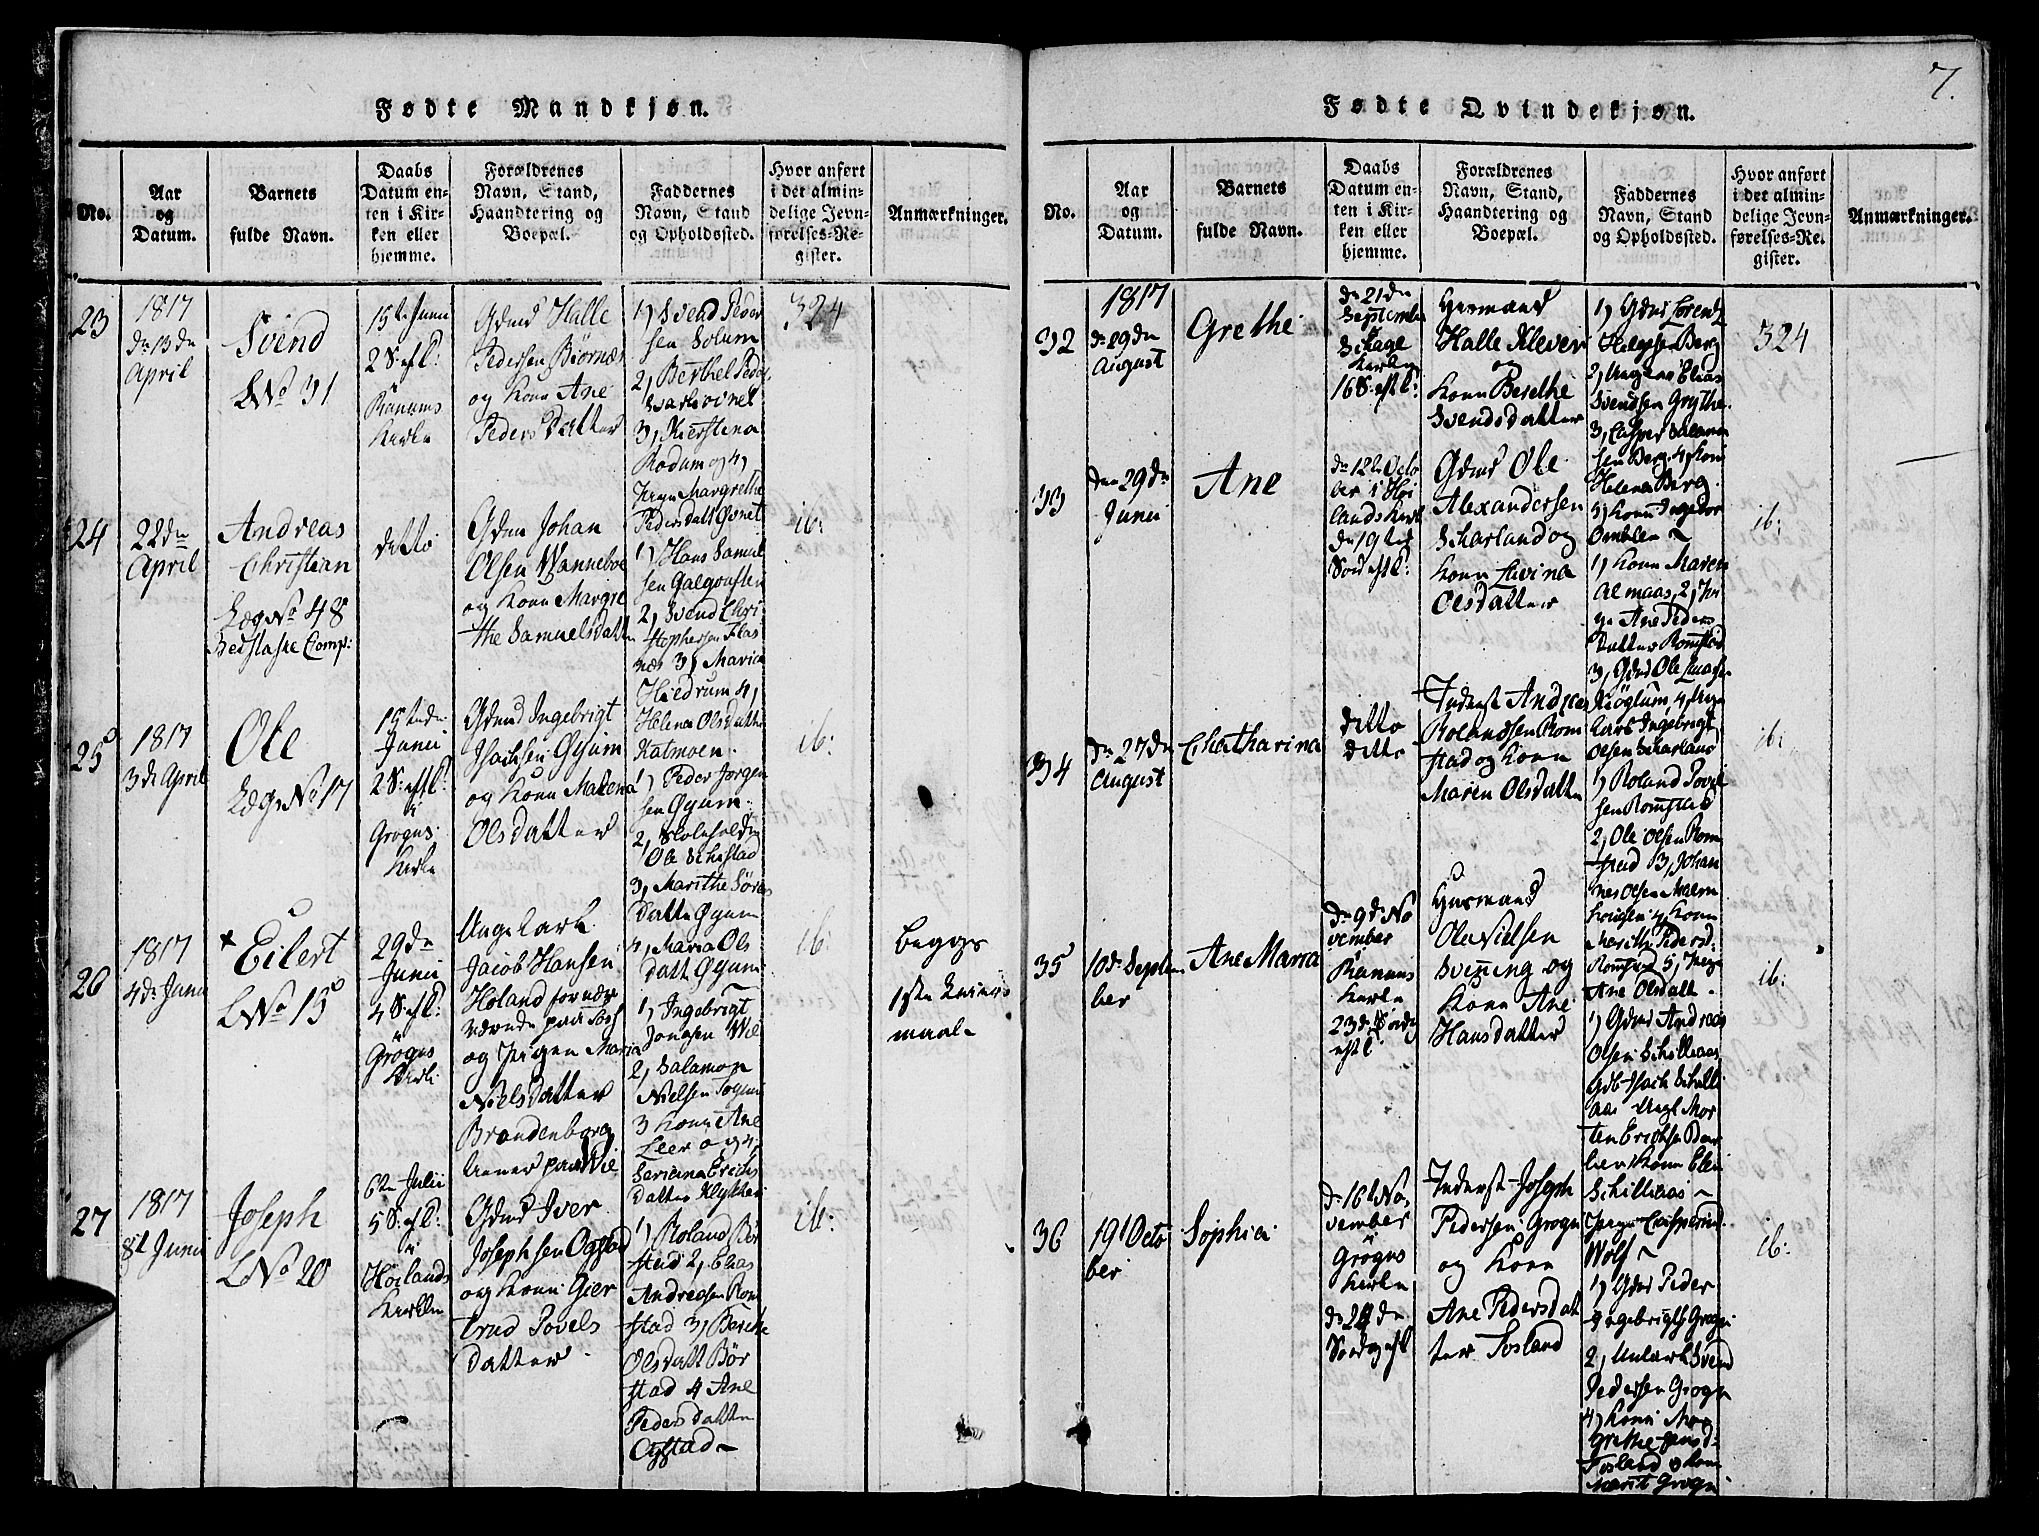 7.
Fødte Mandkjøn.
No.
Aar
og
Datum.
Barnets
fulde Navn.
Daabs
Datum en-
ten i Kir-
ken eller
hjemme.
Forældrenes
Navn, Stand,
Haandtering og
Boepæl.
Faddernes
Navn, Stand
og Opholdssted.
Hvor anført
i det almin-
delige Jevn-
førelses-Re-
gister.
Anmærkninger.
23
1817
dn 13dn
April
Svend
LNo 31
15t Junii
2 S: eft
Ranums
Kirke
Gdmd Halle
Pedersen Biörnes
og Kone Ane
Peders Datter
1) Svend Peder
sen Solum
2, Berthel Peder
3, Kierstina
Rodum og 4,
Margrethe
Pedersdatt
324
24
22dn
April
Andreas
Christian
Læg No 48
Comp:
ditto
Gdmd Johan
Olsen Wanneboe
og Kone Margre
the Samuelsdatter
1) Hans Samuel
sen
2, Svend Chri
stophersen Flas
nes 3, Maria
Hiedrum 4,
Helena Olsdatter
Kalmoen
ib:
25
1817
3de April
Ole
Læg No 17
15tende
Junii
2 S: eft
i
Grogns
Kirke
Gdmd Ingebrigt
Isachsen Øyum
og Kone Maltena
Olsdatter
1) Peder Jørgen
sen Øyum
2, Skoleholder
Ole
3, Marithe Sörens
Datter Øyum
4, Maria Ols
datt Øyum
ib:
26
1817
4de Junii
+ Eilert
LNo 15
29de
Junii
4 S: eft:
i
Grögns
Kirke
Ungekarl
Jacob Hansen
Høland
og Pigen Maria
Nielsdatter
Brandenborg
1, Ingebrigt
Jonasen Wie
2, Salamon
Nielsen
3 Kone Ane
Leer og 4,
Seriana Erichs
datter Klykken
ib:
begges
1ste Leiers
maal-
27
1817
8d Junii
Joseph
LNo 20
6te Julii
5 S: eft:
i
Høilands
Kirke
Gdmd Iver
Josephsen Ogstad
og Kone Gier
trud Povels
datter
1) Roland Bör
stad 2, Elias
Andreasen Rom
stad 3, Berithe
Olsdatt Bör
stad 4 Ane
Pedersdatter
Ogstad
ib:
Fødte Qvindekjøn.
No.
Aar
og
Datum.
Barnets
fulde Navn.
Daabs
Datum en-
ten i Kir-
ken eller
hjemme.
Forældrenes
Navn, Stand,
Haandtering og
Boepæl.
Faddernes
Navn, Stand
og Opholdssted.
Hvor anført
i det almin-
delige Jevn-
førelses-Re-
gister.
Anmærkninger.
32
1817
dn 29dn
August
Grethe
dn 21dn
Septembr
i Skage
Kirke
16 S: eft:
Husmand
Halle Klever
og
Kone Berethe
Svendsdatter
1, Gdmd Lorentz
Berg
2, Ungkarl Elias
Svendsen Grythe
3, Casper Salamon
sen Berg. 4, Kone
Helena Berg
5, Kone Ingebor
Omblen
324
33
den 29dn
Junii
Ane
dn 12te Octo
ber i Höi
lands Kirk
dn 19tde
Sönd eft:
Gdmd Ole
Alexandersen
Skarland og
Kone Lavina
Olsdatter
1, Kone Maren
Almaas, 2, Pi
ge Ane Peders
datter Romstad
3, Gdmd Ole
4, Unge
karl Ingebrigt
Olsen Skarland
ib:
34
dn 27dn
August
Chatharina
ditto
ditto
Inderst Andreas
Rolandsen Rom
stad og Kone
Maren Olsdatter
1) Roland Povel
sen Romstad
2, Ole Olsen Rom
stad 3, Johan
nes Olsen
4, Kone
Marithe Pedersd:
Romstad 5, Pige
Ane Olsdatt
ib:
35
10de Septem
ber
Ane Maria
dn 9de No
vember
Ranums
Kirke
23de Söndag
eft
Husmand
Ole Nielsen
Svening og
Kone Ane
Hansdatter
1) Gdmd Andreas
Olsen Schillaas
Isach Schilli
aas Mor
ten Erichsen
Kone Elen
Schillaas
Pigen
Wolf
ib:
36
19de Octo
ber
Sophia
dn 16de No
vember
Grögns
Kirke
dn 24de
Söndag eft
Inderst Joseph
Pedersen Grogn
og Kone
Ane Pedersdat
ter Fosland
1) Gdmd Peder
Ingebrigts Grogn
2, Unkarl Svend
Pedersen Grogn
4) Kone Mag
Grethe
Fosland
Marit Grogn
ib: